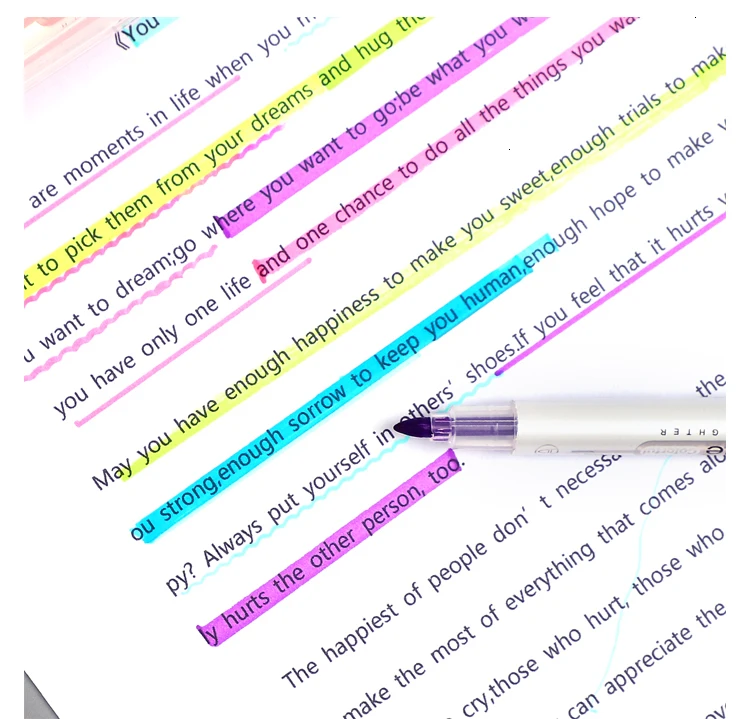 《You
are moments in life when you
t to pick them from your dreams and hug
u want to dream;go where you want to go;be what you
you have only one life and one chance to do all the things you
May you have enough happiness to make you sweet,enough trials to
ou strong,enough sorrow to keep you human,enough hope to make
py? Always put yourself in others' shoes.If you feel that it hurts
ly hurts the other person, too.
the
The happiest of people don' t
make the most of everything that comes
cry,those who hurt, those who
can appreciate the
GHTER